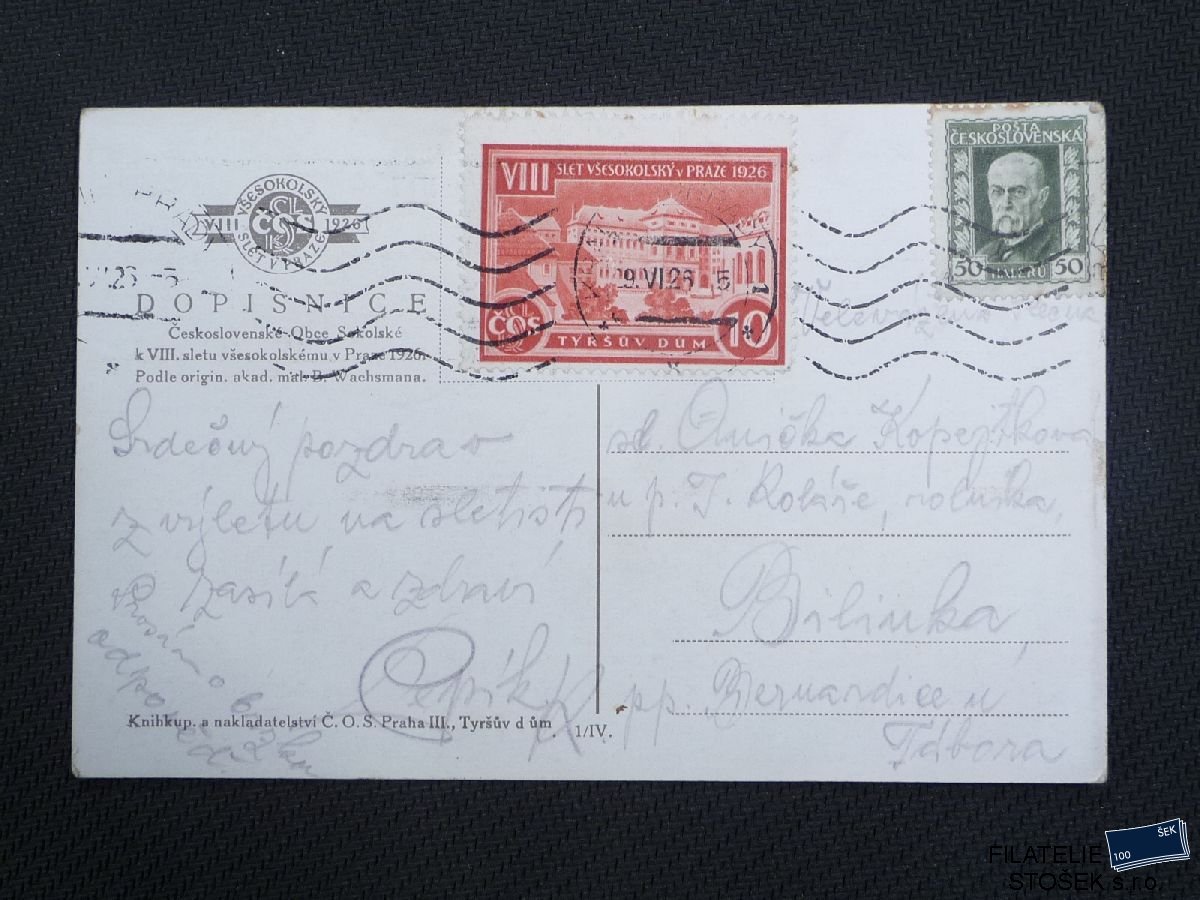 VŠESOKOLSKÝ
VIII ČOS 1926
SLET V PRAZE
DOPISNICE
Československé Obce Sokolské
k VIII. sletu všesokolskému v Praze 1926.
Podle origin. akad. mal. B. Wachsmana.
VIII SLET VŠESOKOLSKÝ V PRAZE 1926
ČOS TYRŠŮV DŮM 10
9.VI.26 5
1
POŠTA
ČESKOSLOVENSKÁ
50 HALÉŘŮ 50
Srdečný pozdrav
z výletu na sletišti
zasílá a zdraví
Pepík K.
Prosím o
odpověď.
Velevážená slečna
sl. Anička Kopejtkova
u p. J. Koláře, rolníka,
Bilinka,
pp. Bernardice u
Tábora
Knihkup. a nakladatelství Č. O. S. Praha III., Tyršův d ům
1/IV.
100 ŠEK
FILATELIE
STOŠEK s.r.o.